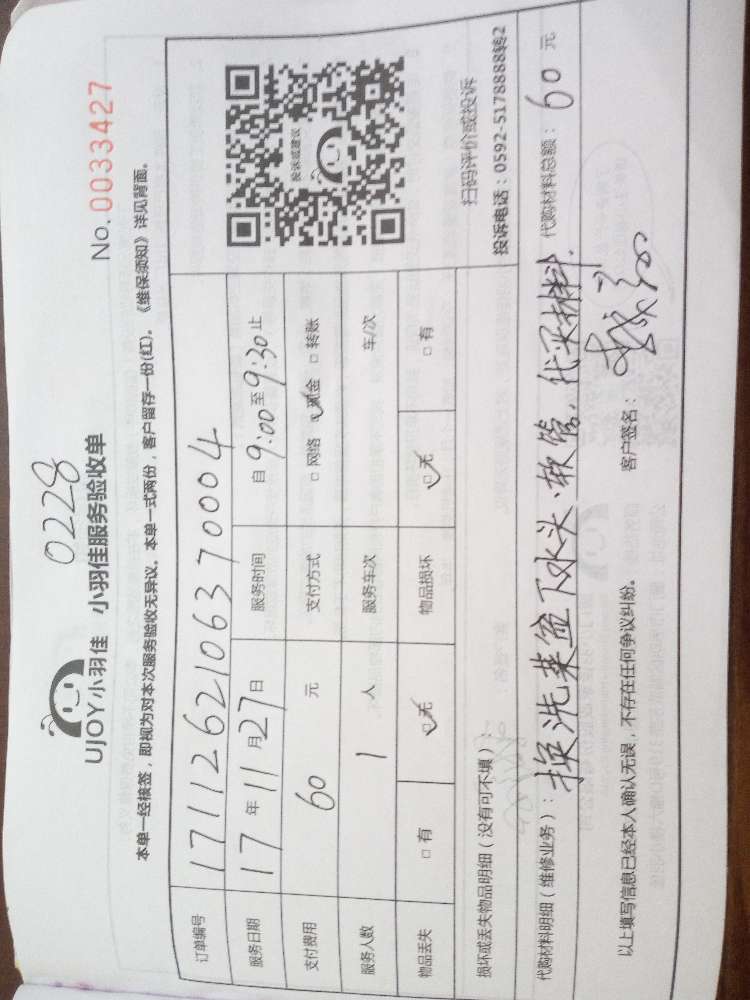 0228
UJOY小羽佳 小羽佳服务验收单
No.0033427
本单一经核签，即视为对本次服务验收无异议。本单一式两份，客户留存一份(红)。《维保须知》详见背面。
订单编号 171126210637 0004
服务日期 17年11月27日 服务时间 自9:00至9:30止
支付费用 60元 支付方式 □网络 ☑现金 □转账
服务人数 1人 服务车次 车/次
物品丢失 □有 ☑无 物品损坏 ☑无 □有
投诉或建议
扫码评价或投诉
投诉电话：0592-5178888转2
损坏或丢失物品明细（没有可不填）：
代购材料明细（维修业务）：换洗菜盆下水头、软管，代买材料. 代购材料总额：60元
以上填写信息已经本人确认无误，不存在任何争议纠纷。 客户签名：